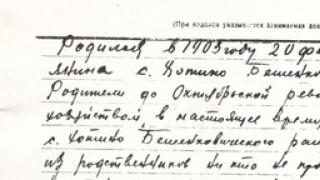 (При подписи указывается занимаемая дол
Родился в 1903 году 20 фе
с. Хотино Бешенко
Родители до Октябрьской рев
хозяйством, в настоящее время
с. Хотино Бешенковического рай
из родственников ни кто не про